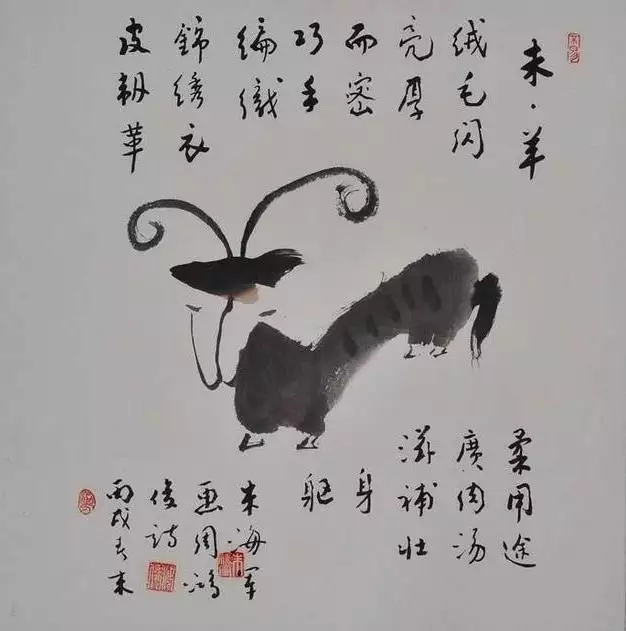 未·羊
绒毛闪
亮厚
而密
巧手
编織
錦绣衣
皮韧革
柔用途
廣肉汤
滋補壮
身
躯
朱海军
画周鸿
俊詩
丙戌春末